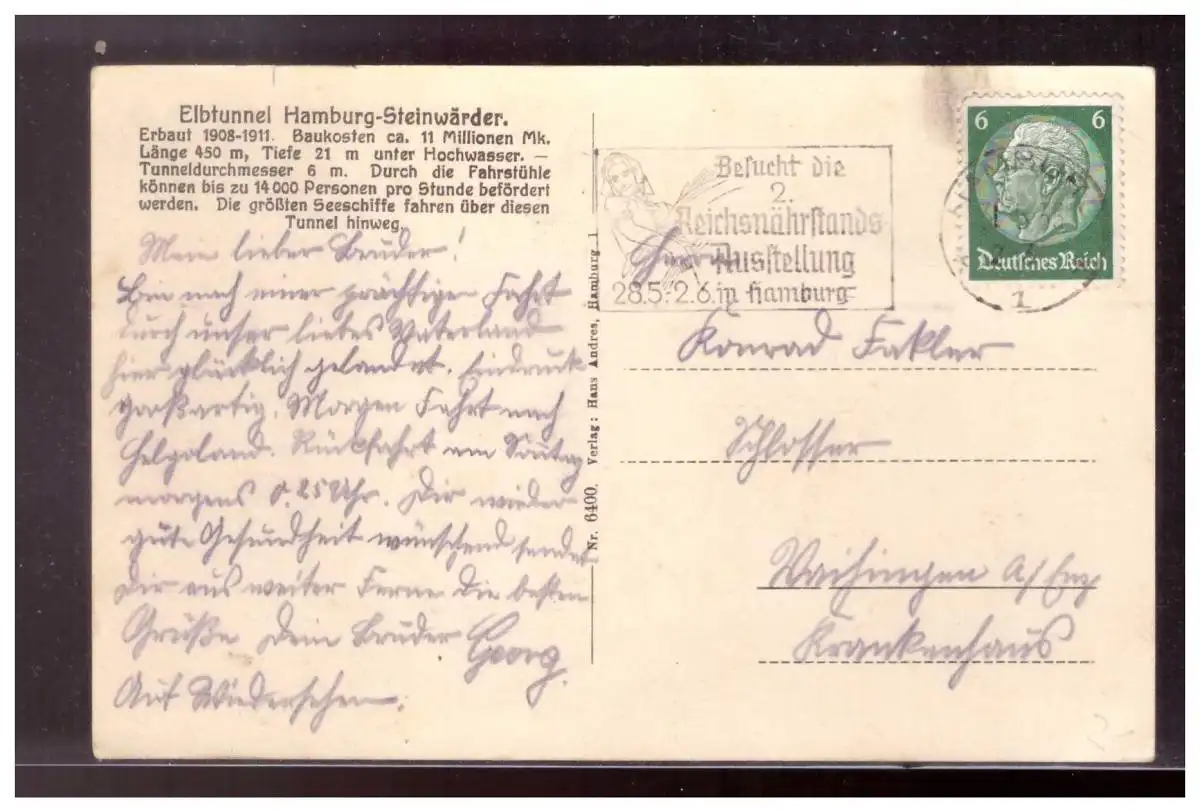 Elbtunnel Hamburg-Steinwärder.
Erbaut 1908-1911. Baukosten ca. 11 Millionen Mk.
Länge 450 m, Tiefe 21 m unter Hochwasser. —
Tunneldurchmesser 6 m. Durch die Fahrstühle
können bis zu 14000 Personen pro Stunde befördert
werden. Die größten Seeschiffe fahren über diesen
Tunnel hinweg.
Mein lieber Bruder!
Bin nach einer prächtigen Fahrt
durch unser liebes Vaterland
hier glücklich gelandet. Eindruck
großartig. Morgen Fahrt nach
Helgoland. Rückfahrt am Sonntag
morgens 8.25 Uhr. Dir wieder
gute Gesundheit wünschend sendet
Dir aus weiter Ferne die besten
Grüße Dein Bruder Georg.
Auf Wiedersehen.
Nr. 6400. Verlag: Hans Andres, Hamburg 1
Besucht die
2.
Reichsnährstands-
Ausstellung
28.5.-2.6. in Hamburg
6 6
Deutsches Reich
1
Herrn
Konrad Fakler
Schlosser
Vaihingen a/Enz
Krankenhaus